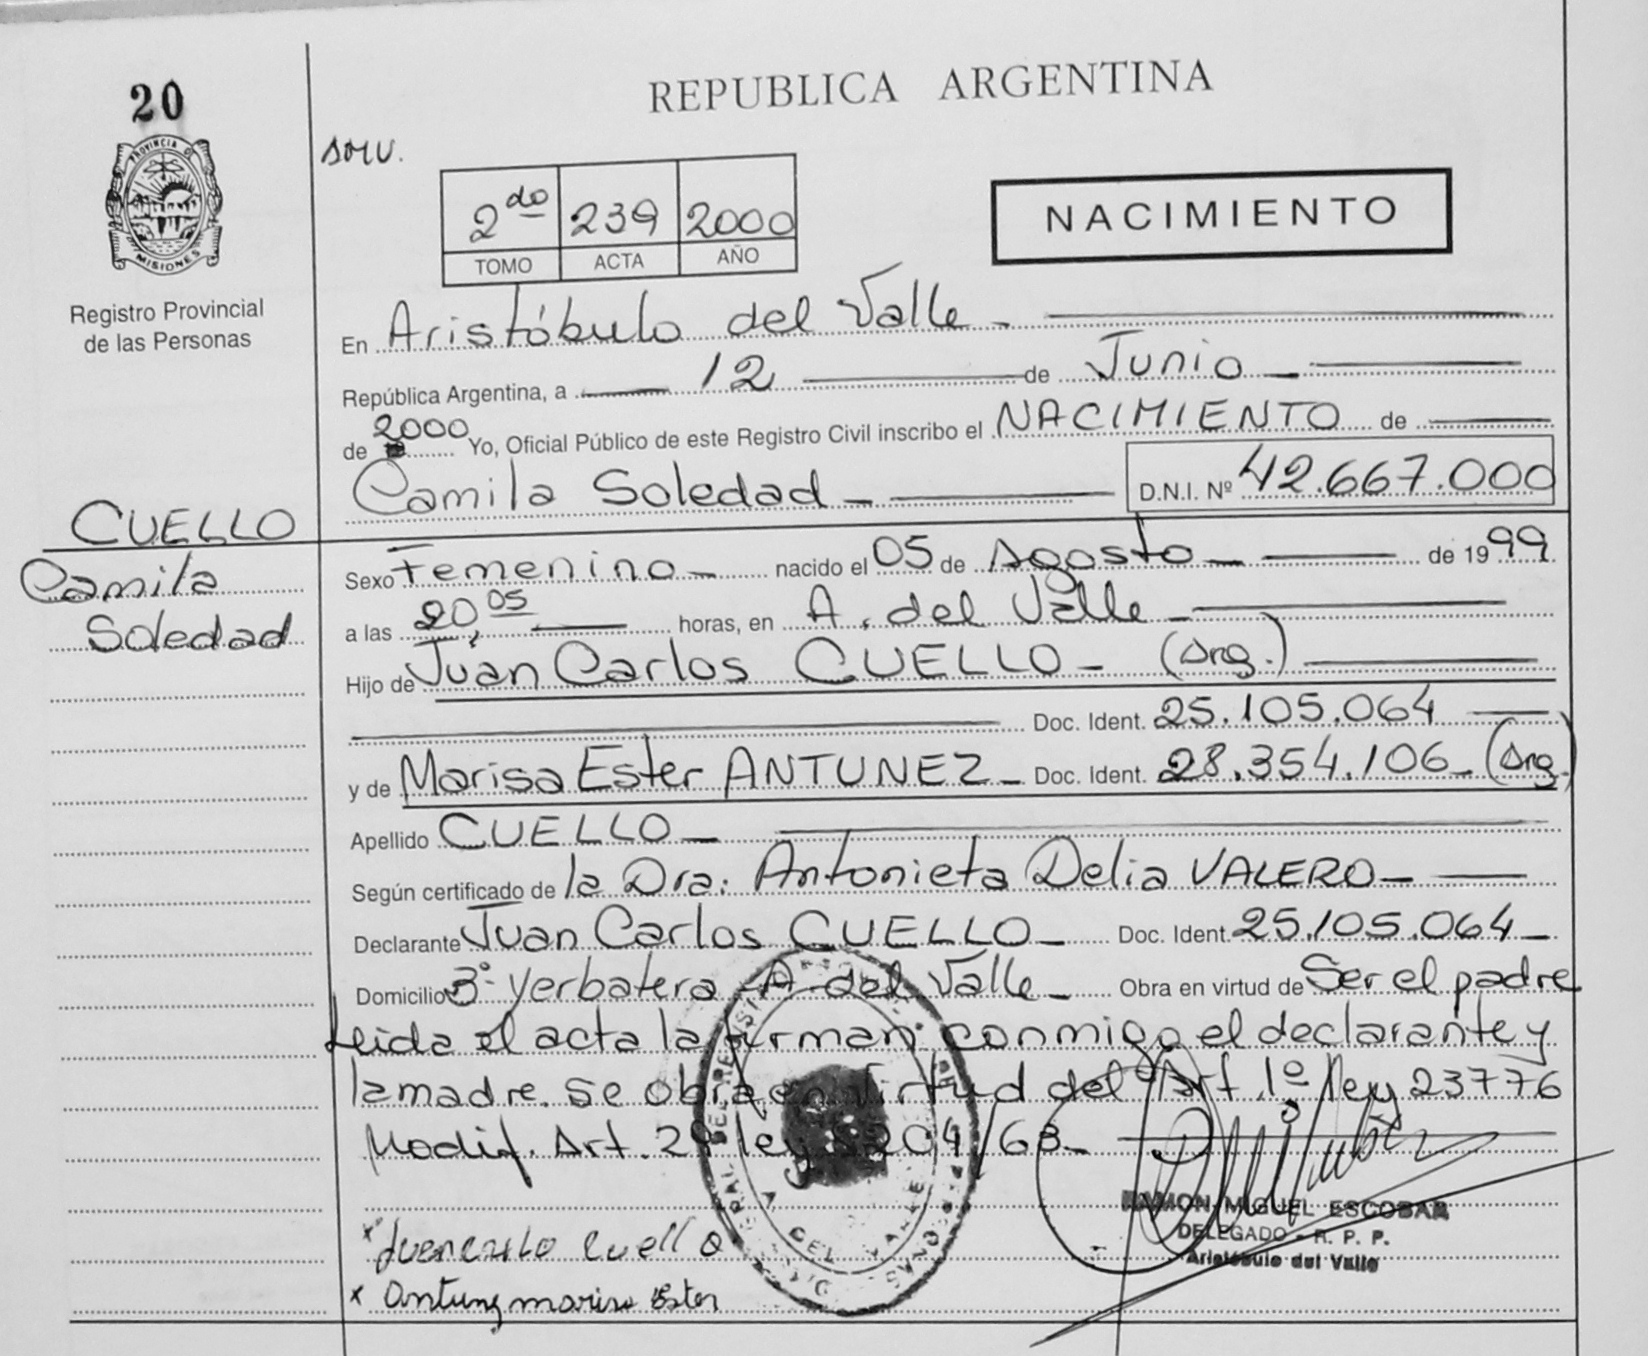 20
REPUBLICA ARGENTINA
PROVINCIA D
MISIONES
Registro Provincial
de las Personas
2do 239 2000
TOMO ACTA AÑO
NACIMIENTO
En Aristóbulo del Valle
República Argentina, a 12 de Junio
de 2000 Yo, Oficial Público de este Registro Civil inscribo el NACIMIENTO de
Camila Soledad D.N.I. Nº 42.667.000
CUELLO
Camila
Soledad
Sexo Femenino nacido el 05 de Agosto de 1999
a las 20,05 horas, en A. del Valle
Hijo de Juan Carlos CUELLO (Arg.)
Doc. Ident. 25.105.064
y de Marisa Ester ANTUNEZ Doc. Ident. 28.354.106 (Arg.)
Apellido CUELLO
Según certificado de la Dra. Antonieta Delia VALERO
Declarante Juan Carlos CUELLO Doc. Ident. 25.105.064
Domicilio 3° Yerbatera A. del Valle Obra en virtud de Ser el padre
Leida el acta la firman conmigo el declarante y
la madre. Se obra en virtud del Art. 1º ley 23776
Modif. Art. 29 ley 8204/63
RAMON MIGUEL ESCOBAR
DELEGADO - R. P. P.
Aristóbulo del Valle
x Cuello
x Antunez marisa Ester